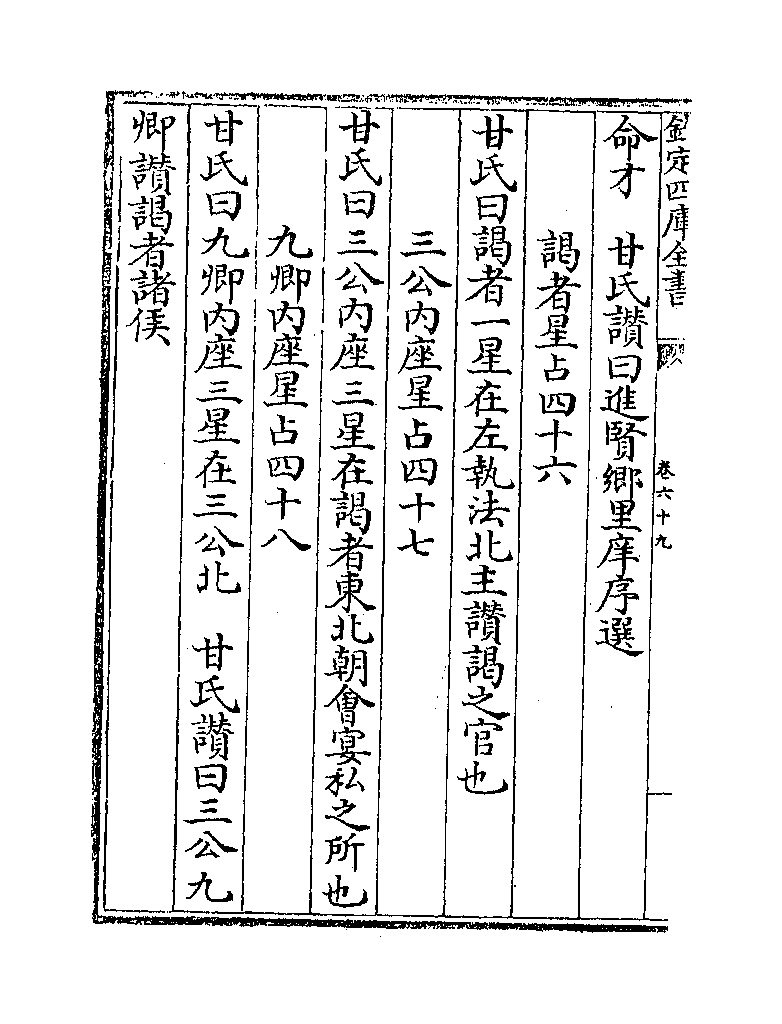 欽定四庫全書
卷六十九
命才　甘氏讃曰進賢鄉里庠序選
謁者星占四十六
甘氏曰謁者一星在左執法北主讃謁之官也
三公内座星占四十七
甘氏曰三公内座三星在謁者東北朝會宴私之所也
九卿内座星占四十八
甘氏曰九卿内座三星在三公北　甘氏讃曰三公九
卿讃謁者諸侯